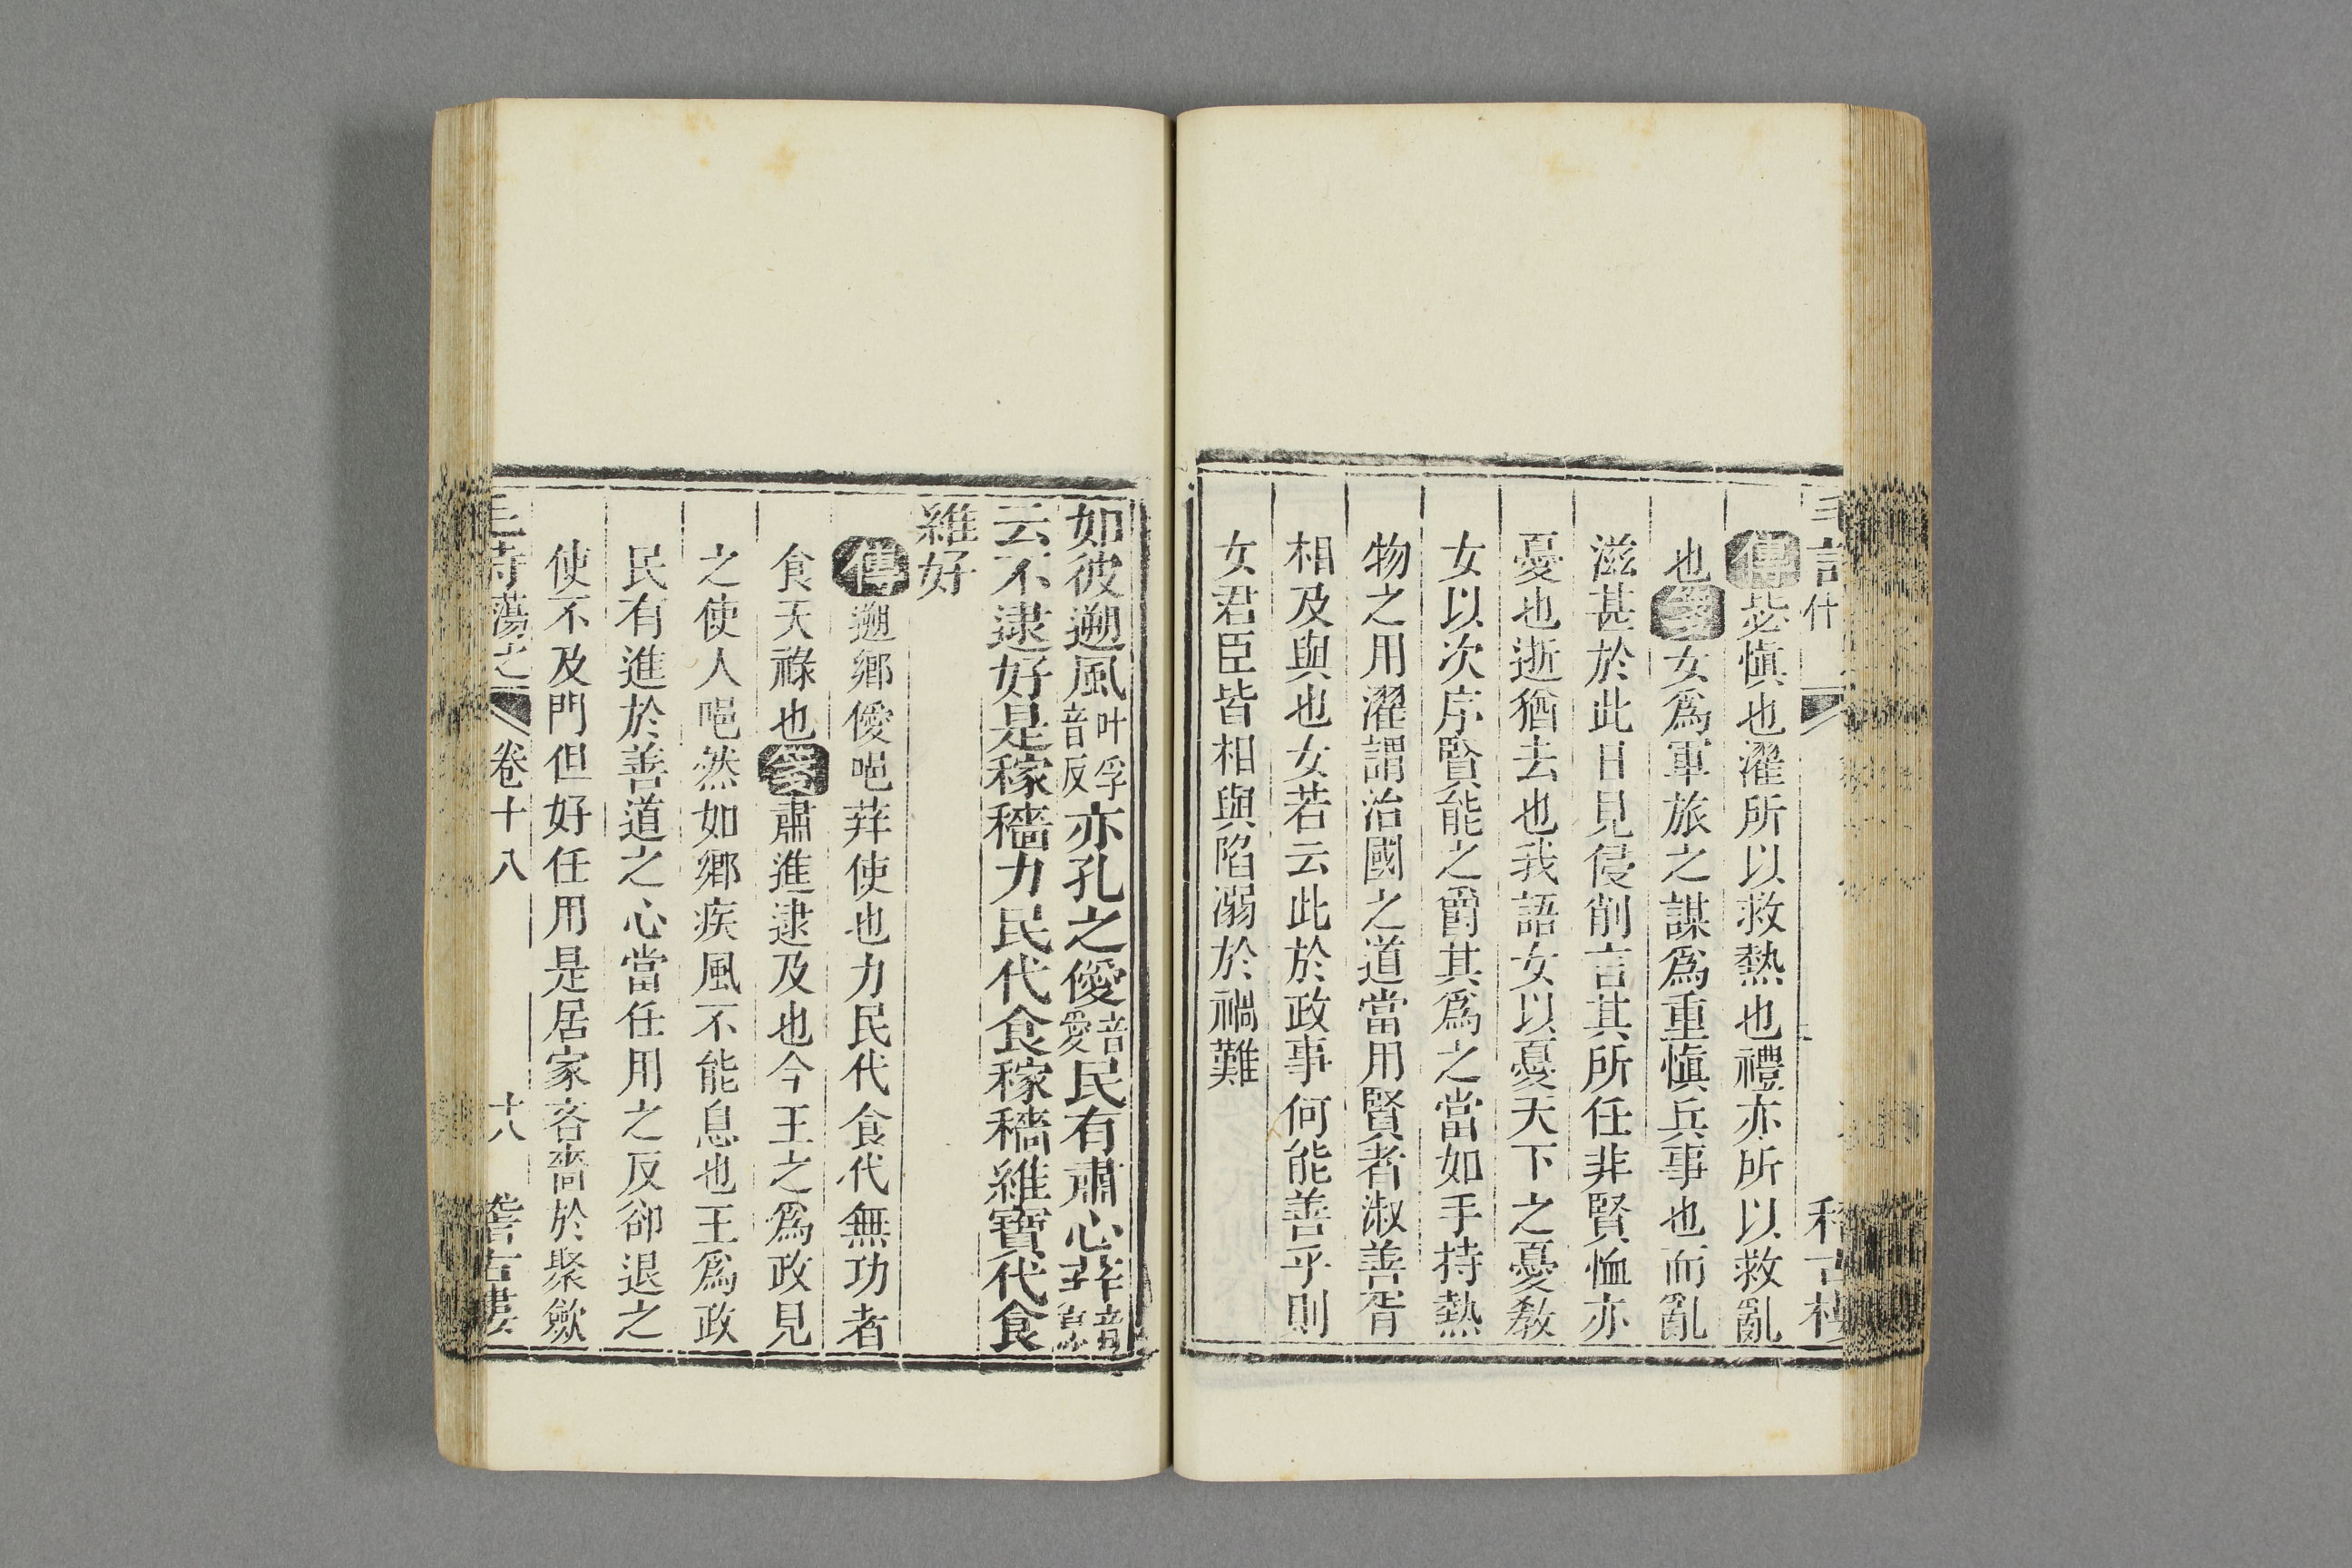 傳毖慎也濯所以救熱也禮亦所以救亂
也箋女爲軍旅之謀爲重慎兵事也而亂
滋甚於此日見侵削言其所任非賢恤亦
憂也逝猶去也我語女以憂天下之憂教
女以次序賢能之爵其爲之當如手持熱
物之用濯謂治國之道當用賢者淑善胥
相及與也女若云此於政事何能善乎則
女君臣皆相與陷溺於禍難
如彼遡風叶孚音反亦孔之僾音愛民有肅心荓音
云不逮好是稼穡力民代食稼穡維寶代食
維好
傳遡鄉僾唈荓使也力民代食代無功者
食天祿也箋肅進逮及也今王之爲政見
之使人唈然如鄉疾風不能息也王爲政
民有進於善道之心當任用之反卻退之
使不及門但好任用是居家吝嗇於聚斂
毛詩蕩之 卷十八 十八 稽古樓